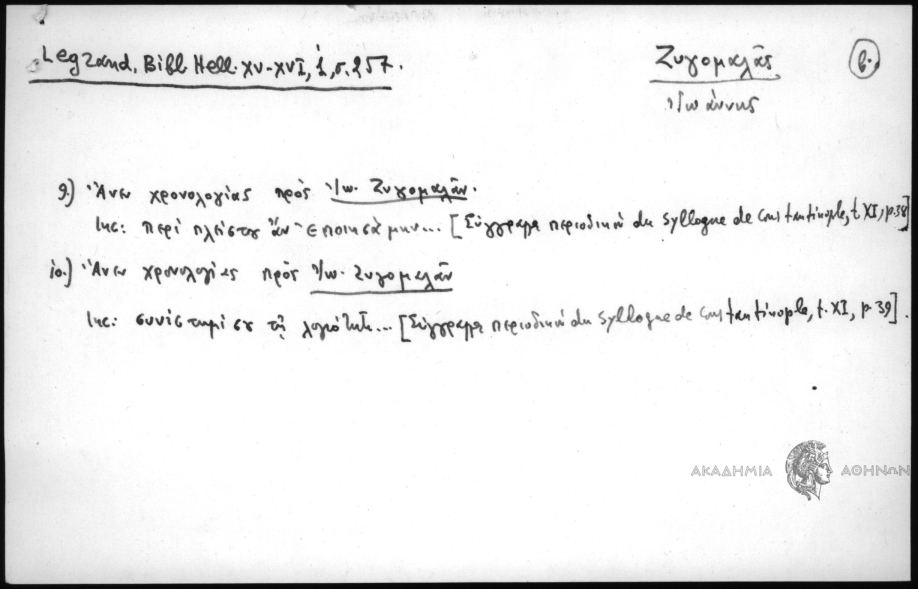 Legrand, Bibl Hell. XV-XVI, 1, σ. 257.
Ζυγομαλᾶς
β.
Ἰωάννης
9.) Ἄνευ χρονολογίας πρὸς Ἰω. Ζυγομαλᾶν.
Inc: περὶ πλείστου ἂν ἐποιησάμην... [Σύγγραμμα περιοδικὸν du Syllogue de Constantinople, t. XI, p. 38]
10.) Ἄνευ χρονολογίας πρὸς Ἰω. Ζυγομαλᾶν
Inc: συνίστημί σοι τῇ λογιότητι... [Σύγγραμμα περιοδικὸν du Syllogue de Constantinople, t. XI, p. 39].
ΑΚΑΔΗΜΙΑ ΑΘΗΝΩΝ